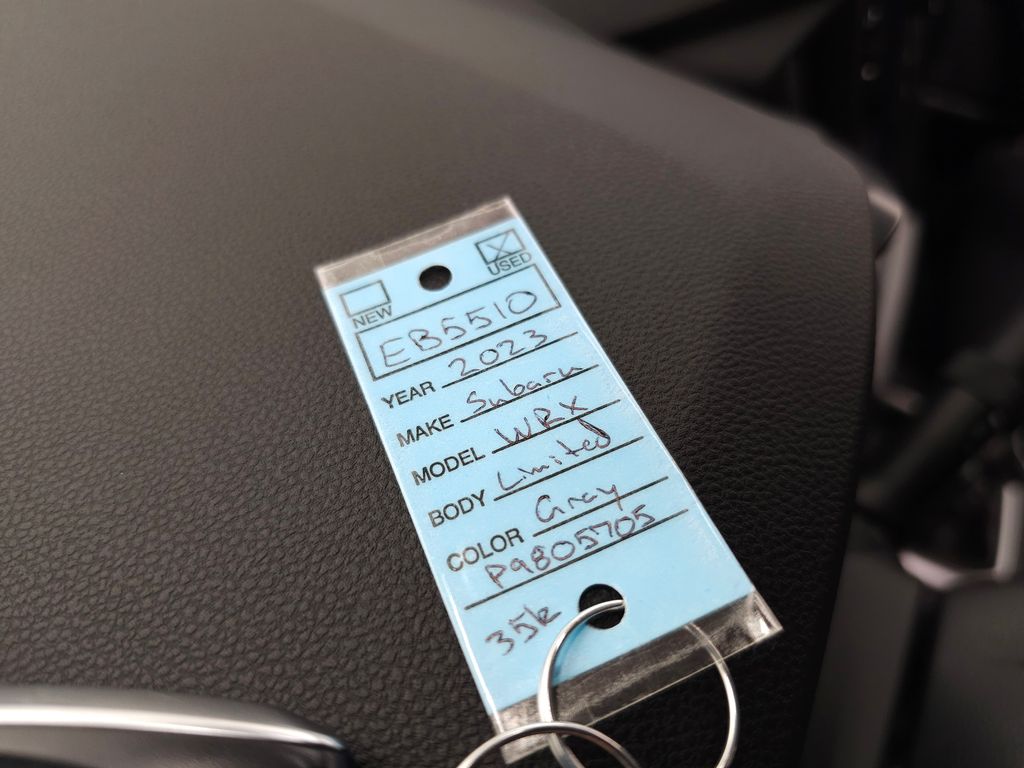 NEW USED
EB5510
YEAR 2023
MAKE Subaru
MODEL WRX
BODY Limited
COLOR Gray
P9805705
35k